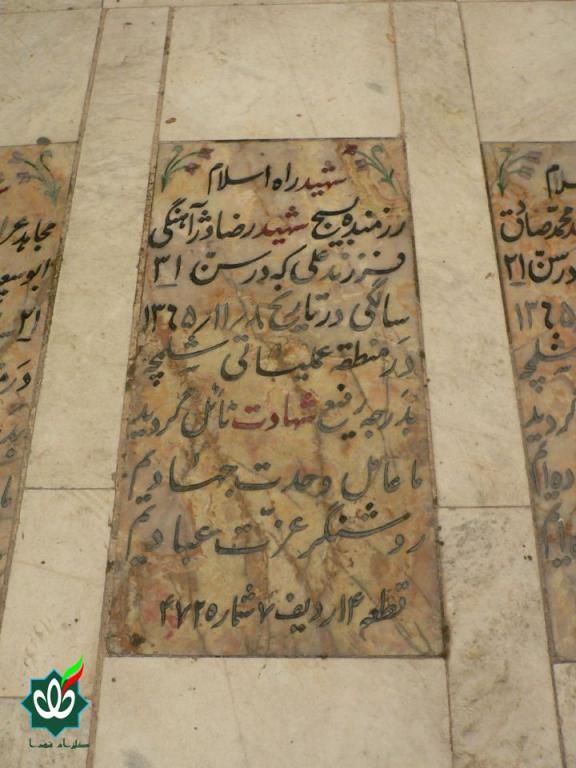 شهید راه اسلام
رزمنده بسیج شهید رضا دژآهنگی
فرزند علی که در سن ۳۱
سالگی در تاریخ ۶۵/۱۱/۸ ۱۳
در منطقه عملیاتی شلمچه
بدرجه رفیع شهادت نائل گردید
ما عامل وحدت جهادیم
روشنگر عزّت عبادیم
قطعه ۱۴ ردیف ۷ شماره ۴۷۲
محمد صادق
در سنّ ۲۱
۱۳۶۵
شلمچه
گردید
ابوسعید
۲۱
گلزار شهدا